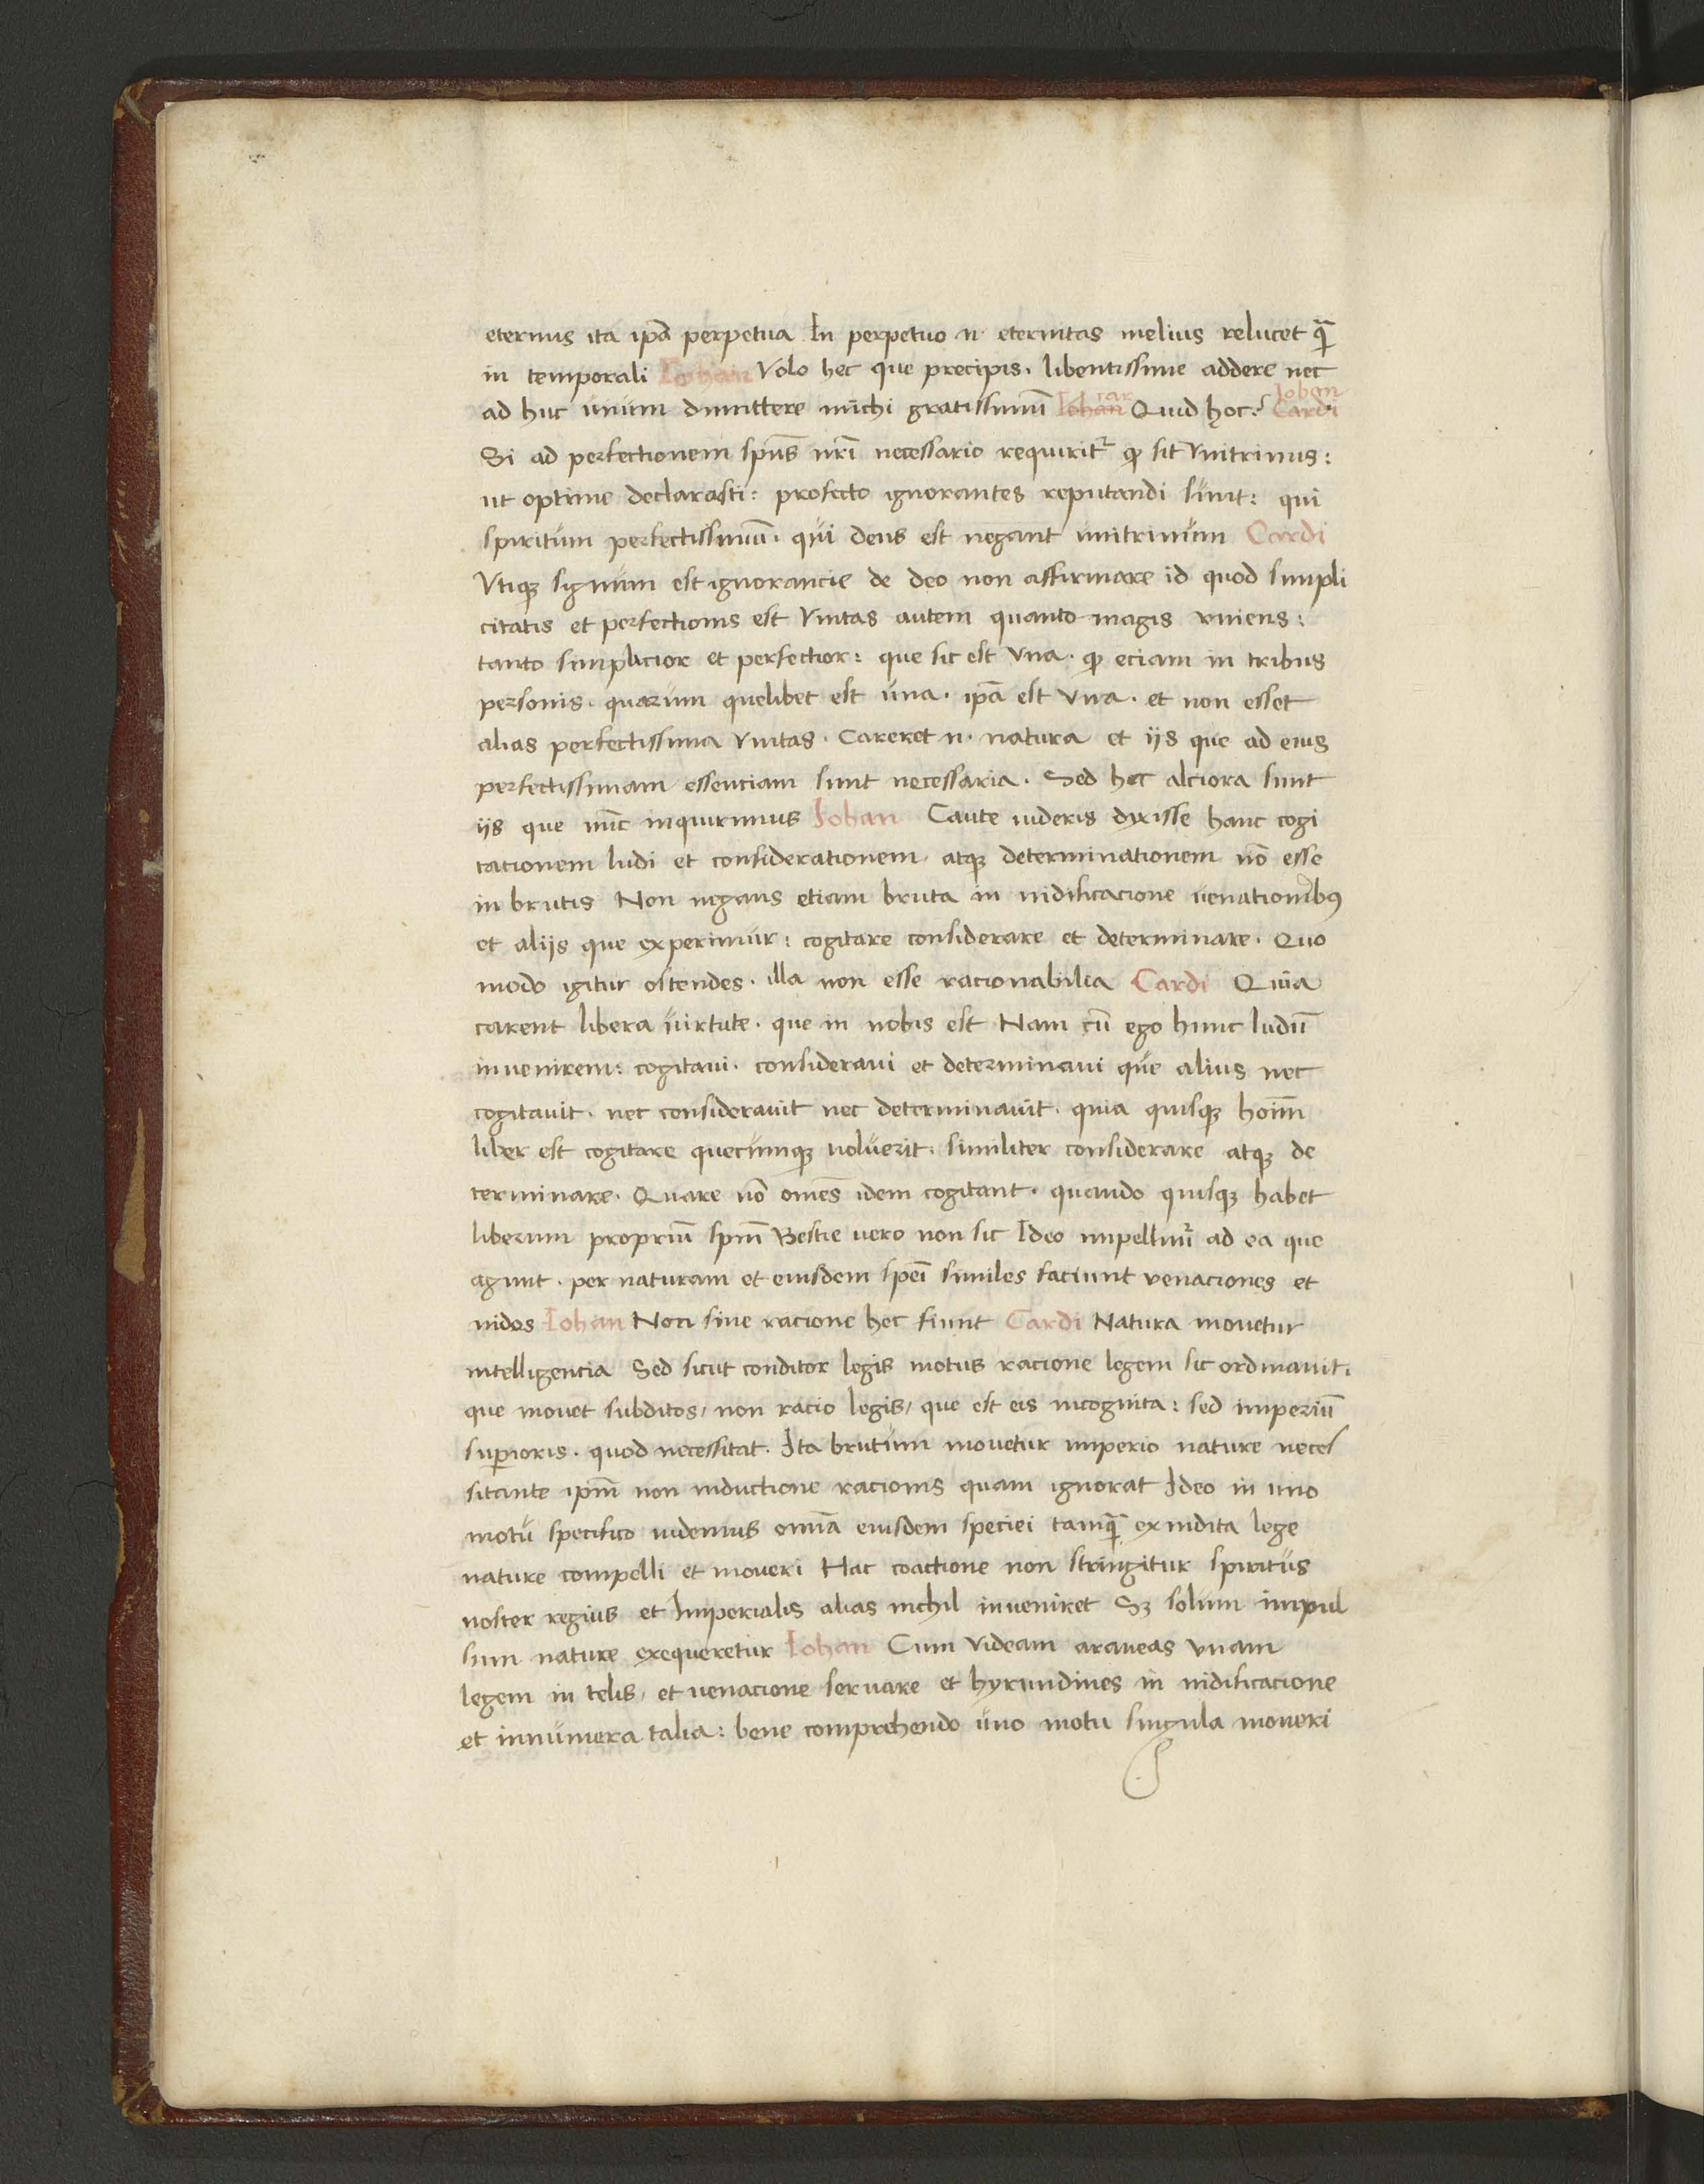 eternus ita ip̄a perpetua In perpetuo n· eternitas melius relucet q̄
in temporali Iohan Volo hec que precipis· libentissime addere nec
ad huc unum dimittere michi gratissimū Iohan car Quid hoc? Cardi Iohan
Si ad perfectionem sp̄us nr̄i necessario requirit᷑ ꝙ sit Vnitrinus:
ut optime declarasti: profecto ignorantes reputandi sunt: qui
spiritum perfectissimū· qui deus est negant unitrinum Cardi
Vtiqꝫ signum est ignorancie de deo non affirmare id quod simpli
citatis et perfectionis est Vnitas autem quanto magis vniens:
tanto simplicior et perfectior: que sic est Vna· ꝙ eciam in tribus
personis· quarum quelibet est una· ip̄a est Vna· et non esset
alias perfectissima Vnitas· Careret n· natura et ijs que ad eius
perfectissimam essenciam sunt necessaria· Sed hec alciora sunt
iis que nūc inquirimus Iohan Caute uideris dixisse hanc cogi
tacionem ludi et considerationem· atqꝫ determinationem nō esse
in brutis Non negans etiam bruta in nidificacione uenationibꝰ
et aliis que experimur: cogitare considerare et determinare· Quo
modo igitur ostendes· illa non esse racionabilia Cardi Quia
carent libera uirtute· que in nobis est Nam cū ego hunc ludū
inuenirem: cogitaui· consideraui et determinaui que alius nec
cogitauit· nec considerauit nec determinauit· quia quisqꝫ hoīm
liber est cogitare quecumqꝫ uoluerit· similiter considerare atqꝫ de
terminare· Quare nō om̄es idem cogitant· quando quisqꝫ habet
liberum propriū sp̄m Bestie uero non sic Ideo impellunt᷑ ad ea que
agunt· per naturam et eiusdem sp̄ei similes faciunt venaciones et
nidos Iohan Non sine racione hec fiunt Cardi Natura mouetur
intelligencia Sed sicut conditor legis motus racione legem sic ordinauit·
que mouet subditos/ non racio legis/ que est eis incognita: sed imperiū
sup̱ioris· quod necessitat· Ita brutum mouetur imperio nature neces
sitante ip̄m non inductione racionis quam ignorat Ideo in uno
motu specifico uidemus om̄ia eiusdem speciei tamq̄ ex indita lege
nature compelli et moueri Hac coactione non stringitur spiritus
noster regius et Imperialis alias nichil inueniret Sꝫ solum impul
sum nature exequeretur Iohan Cum Videam araneas vnam
legem in telis/ et uenacione seruare et hyrundines in nidificacione
et innumera talia: bene comprehendo uno motu singula moueri